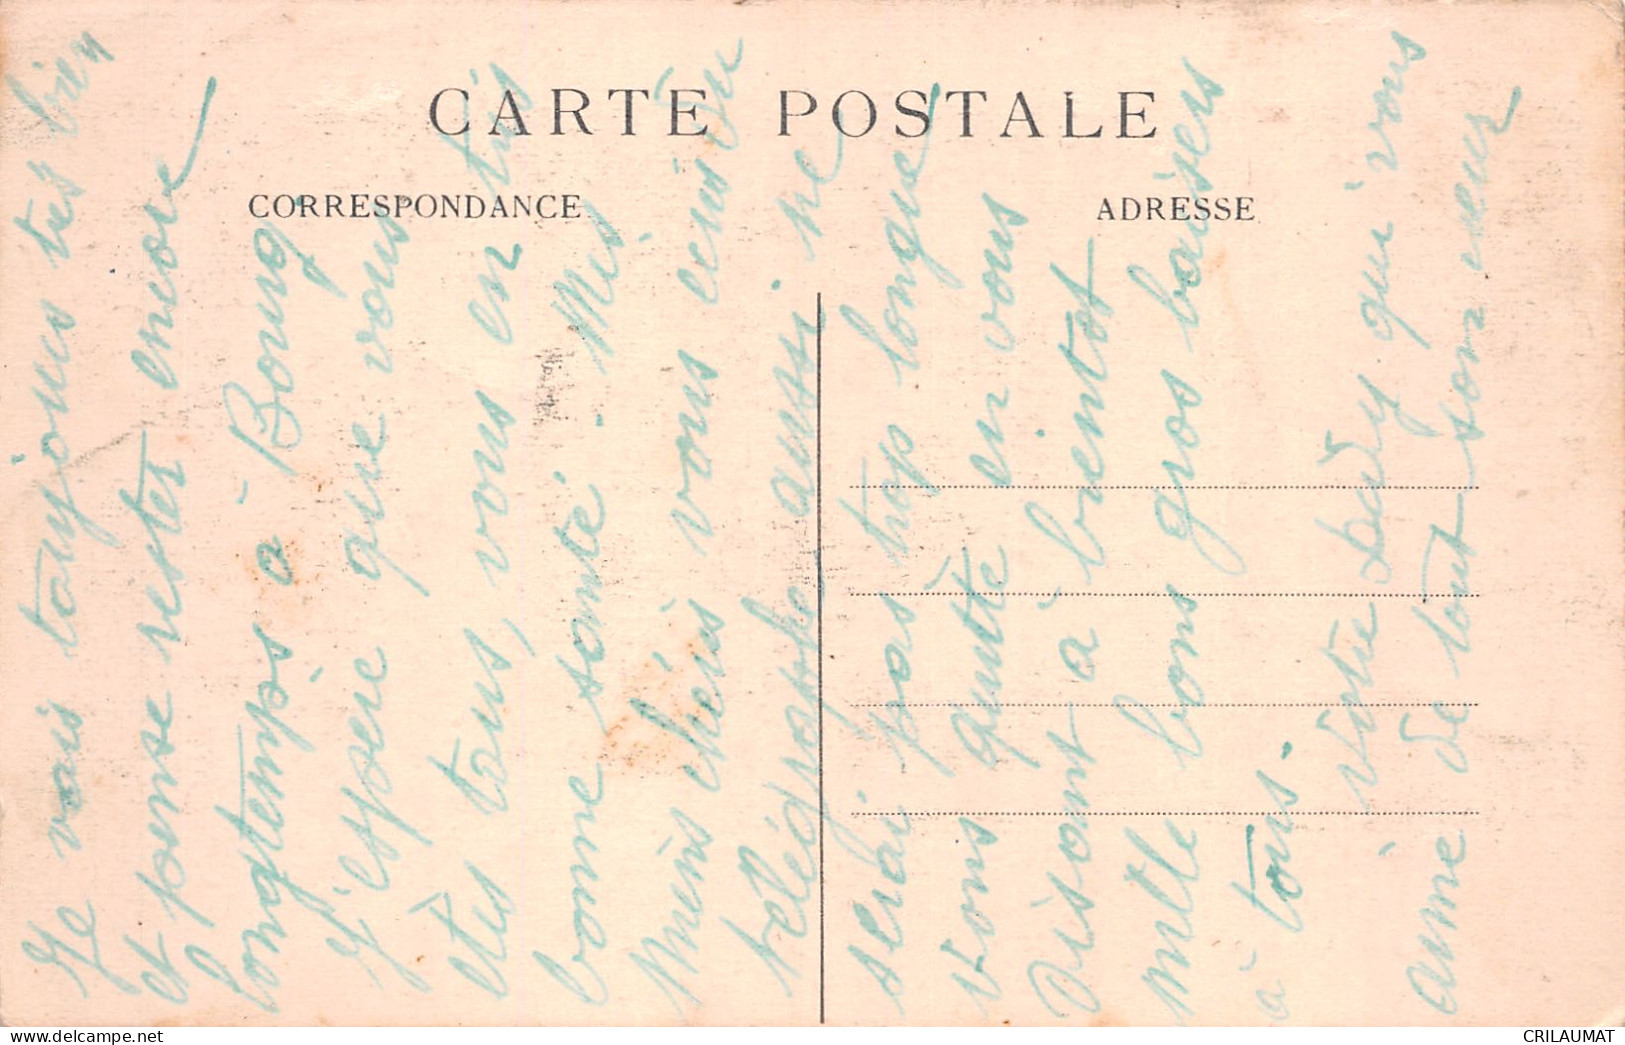 CARTE POSTALE
CORRESPONDANCE
ADRESSE
Je vais toujours très bien
et pense rester encore
longtemps à Bourg
J'espère que vous
êtes tous, vous en très
bonne santé. Mes
chéris vous
télégraphe aussi ne
serai pas trop longue
vous quitte en vous
disant à bientot
mille bons gros baisers
à tous.
Votre qui vous
aime de tout son cœur
CRILAUMAT